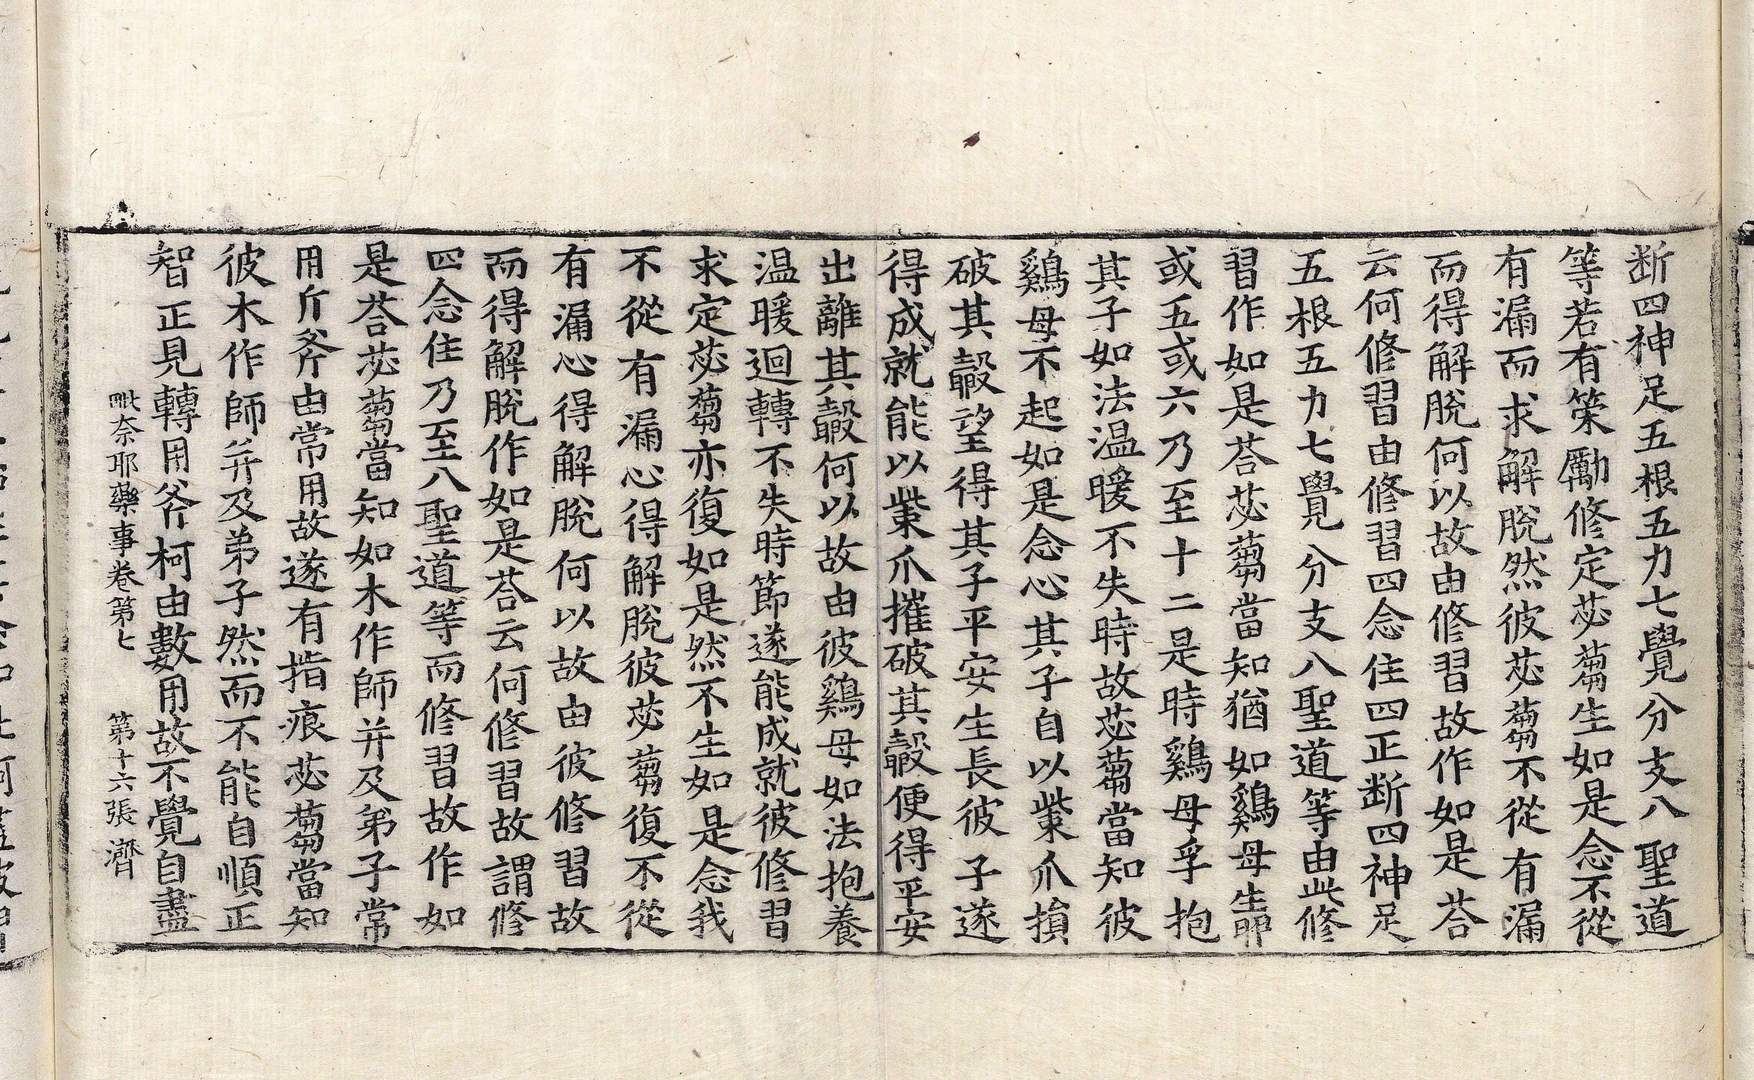 断四神足五根五力七覺分支八聖道
等若有策勵修定苾蒭生如是念不從
有漏而求解脫然彼苾蒭不從有漏
而得解脫何以故由修習故作如是荅
云何修習由修習四念住四正断四神足
五根五力七覺分支八聖道等由此修
習作如是荅苾蒭當知猶如鷄母生卵
或五或六乃至十二是時鷄母孚抱
其子如法温暖不失時故苾蒭當知彼
鷄母不起如是念心其子自以觜爪損
破其㲉望得其子平安生長彼子遂
得成就能以觜爪摧破其㲉便得平安
出離其㲉何以故由彼鷄母如法抱養
温暖迴轉不失時節遂能成就彼修習
求定苾蒭亦復如是然不生如是念我
不從有漏心得解脫彼苾蒭復不從
有漏心得解脫何以故由彼修習故
而得解脫作如是荅云何修習故謂修
四念住乃至八聖道等而修習故作如
是荅苾蒭當知如木作師并及弟子常
用斤斧由常用故遂有指痕苾蒭當知
彼木作師并及弟子然而不能自順正
智正見轉用斧柯由數用故不覺自盡
毗奈耶藥事卷第七 第十六張 濟